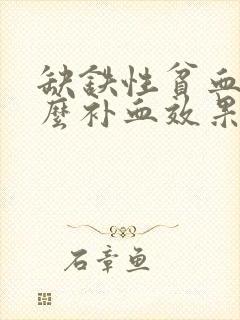 缺铁性贫血
麽补血效果
石章鱼